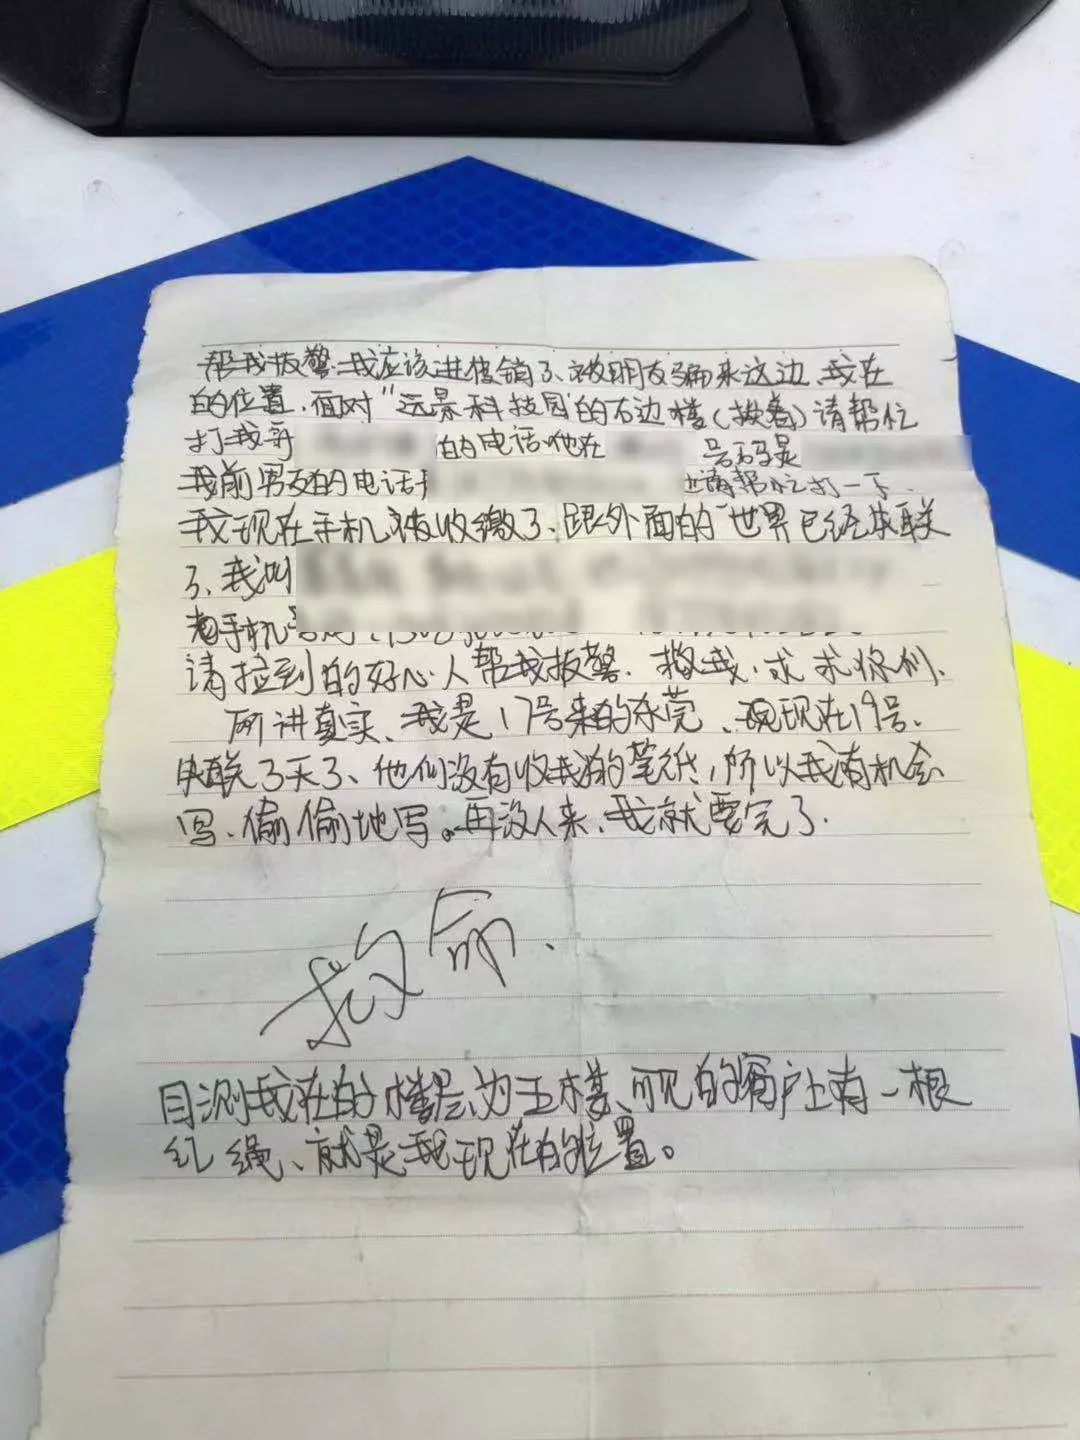 帮我报警.我应该进传销了、被朋友骗来这边、我在
的位置.面对“远景科技园”的右边楼(挨着)请帮忙
打我哥 的电话.他在 号码是
我前男友的电话 也请帮忙打一下.
我现在手机被收缴了、跟外面的世界已经失联
了、我叫
老手机
请捡到的好心人帮我报警.救我.求求你们.
所讲真实、我是17号来的东莞、现现在19号.
失联了天了、他们没有收我的笔纸,所以我有机会
写、偷偷地写。再没人来、我就要完了.
救命.
目测我在的楼层为五楼、可见的窗户上有一根
红绳、就是我现在的位置。